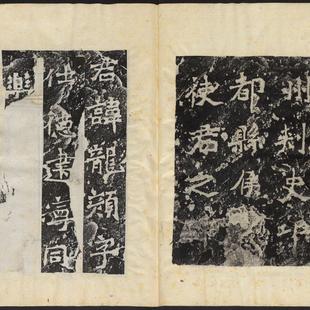 州刺史邛
都縣侯
使君之
君諱龍顏字
仕德建寧同
樂